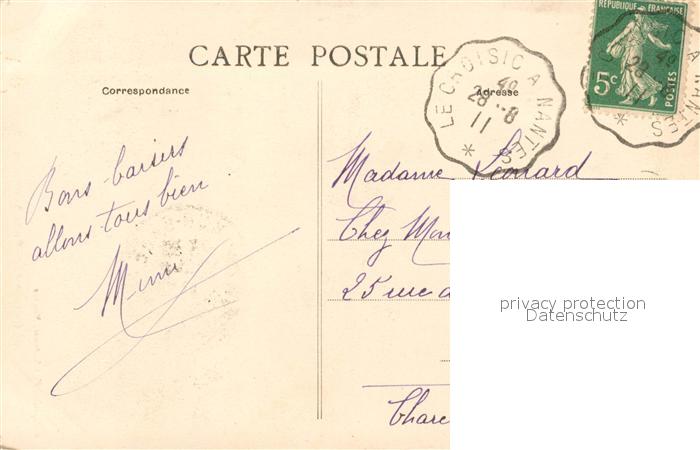 CARTE POSTALE
Correspondance
Adresse
RÉPUBLIQUE FRANÇAISE
5c
POSTES
LE CROISIC A NANTES *
28 - 8
11
A NANTES *
Bons baisers
allons tous bien
Mimi
Madame Léonard
Chez Mon
25 rue d
Chare
privacy protection
Datenschutz